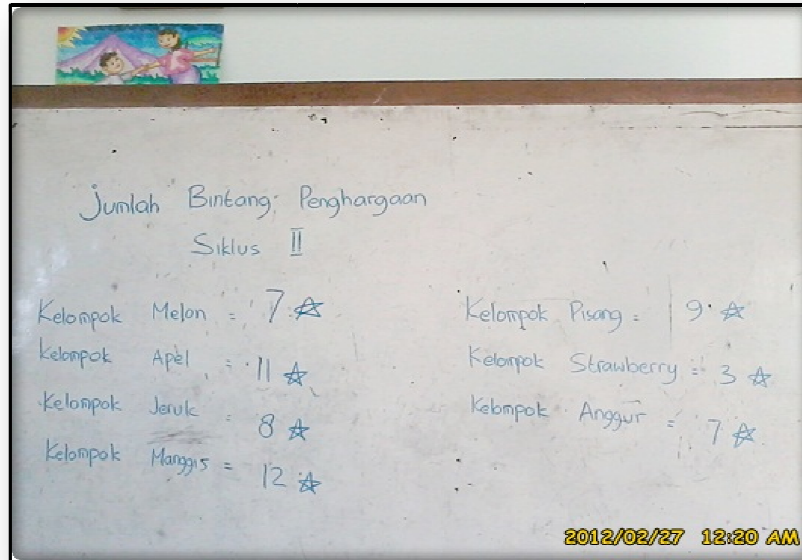 Jumlah Bintang Penghargaan
Siklus II
Kelompok Melon = 7 ☆
Kelompok Apel = 11 ☆
Kelompok Jeruk = 8 ☆
Kelompok Manggis = 12 ☆
Kelompok Pisang = 9 ☆
Kelompok Strawberry = 3 ☆
Kelompok Anggur = 7 ☆
2012/02/27 12:20 AM